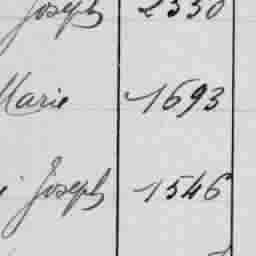 Joseph 2330
Marie 1693
Joseph 1546